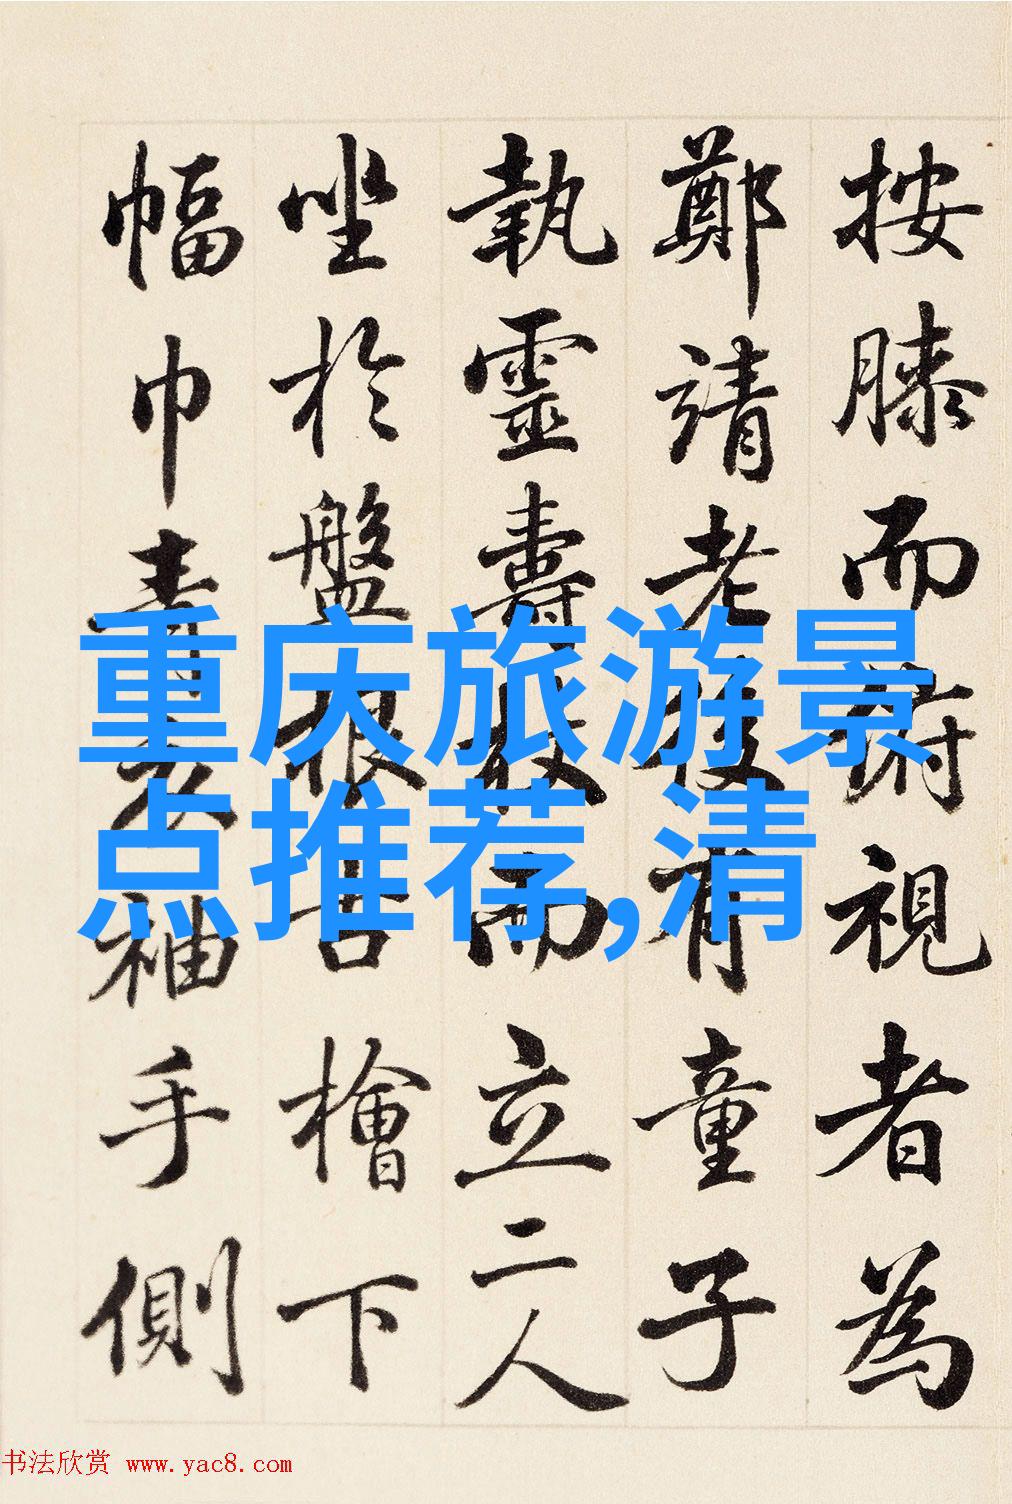 按膝而俯視者為
鄭靖老後有童子
執靈壽杖而立二人
坐於盤根古檜下
幅巾青衣袖手側
重庆旅游景
点推荐,清
书法欣赏 www.yac8.com